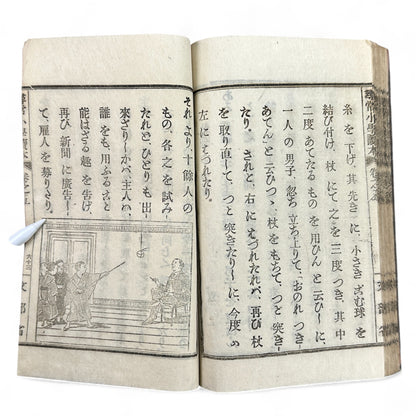 尋常小學讀本 卷之五
糸を下げ、其先きに、小さきごむ球を
結び付け、杖にて之を三度つき、其中
二度あてたるものを用ひんと云ひしに、
一人の男子、忽ち立ち上りて、おのれつき
あてんと云ひつゝ、杖をもちて、つと突き
たり。されど、右にはづれたれば、再び杖
を取り直して、つと突きたりしに、今度は
左にはづれたり。
それより、十餘人の
もの、各之を試み
たれど、ひとりも出
來ざりしかば、主人は、
誰をも用ふること
能はざる趣を告げ、
再び新聞に廣告し
て、雇人を募りたり。
文部省